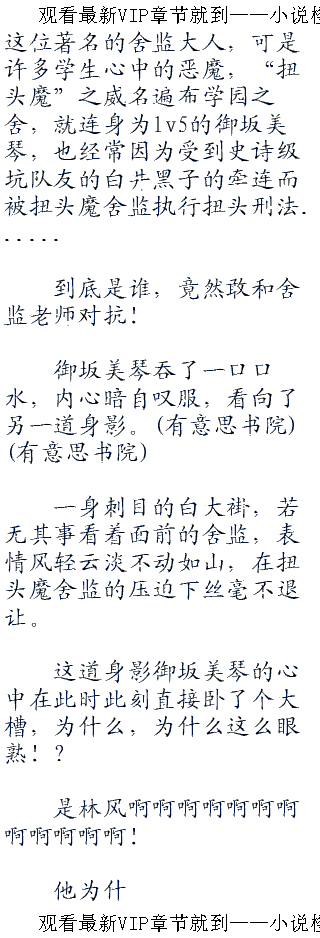 观看最新VIP章节就到——小说楼
这位著名的舍监大人，可是
许多学生心中的恶魔，“扭
头魔”之威名遍布学园之
舍，就连身为lv5的御坂美
琴，也经常因为受到史诗级
坑队友的白井黑子的牵连而
被扭头魔舍监执行扭头刑法.
.....
到底是谁，竟然敢和舍
监老师对抗！
御坂美琴吞了一口口
水，内心暗自叹服，看向了
另一道身影。(有意思书院)
(有意思书院)
一身刺目的白大褂，若
无其事看着面前的舍监，表
情风轻云淡不动如山，在扭
头魔舍监的压迫下丝毫不退
让。
这道身影御坂美琴的心
中在此时此刻直接卧了个大
槽，为什么，为什么这么眼
熟！？
是林风啊啊啊啊啊啊啊
啊啊啊啊啊！
他为什
观看最新VIP章节就到——小说楼